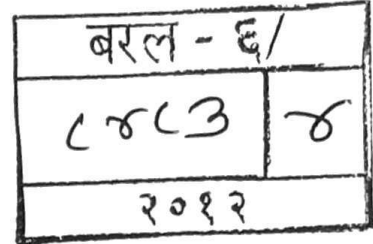 बरल - ६/
८४८३ ४
२०१२